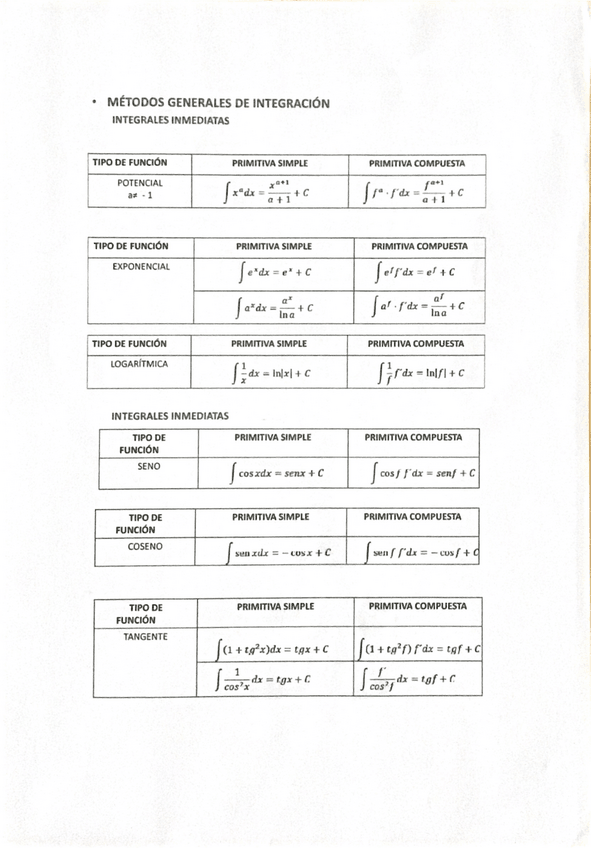 • MÉTODOS GENERALES DE INTEGRACIÓN
INTEGRALES INMEDIATAS
TIPO DE FUNCIÓN PRIMITIVA SIMPLE PRIMITIVA COMPUESTA
POTENCIAL
a≠ - 1
∫ xᵃdx = xᵃ⁺¹/(a + 1) + C ∫ fᵃ · f´dx = fᵃ⁺¹/(a + 1) + C
TIPO DE FUNCIÓN PRIMITIVA SIMPLE PRIMITIVA COMPUESTA
EXPONENCIAL ∫ eˣdx = eˣ + C ∫ e^f f´dx = e^f + C
∫ aˣdx = aˣ/ln a + C ∫ a^f · f´dx = a^f/ln a + C
TIPO DE FUNCIÓN PRIMITIVA SIMPLE PRIMITIVA COMPUESTA
LOGARÍTMICA ∫ 1/x dx = ln|x| + C ∫ 1/f f´dx = ln|f| + C
INTEGRALES INMEDIATAS
TIPO DE FUNCIÓN PRIMITIVA SIMPLE PRIMITIVA COMPUESTA
SENO ∫ cos xdx = senx + C ∫ cos f f´dx = senf + C
TIPO DE FUNCIÓN PRIMITIVA SIMPLE PRIMITIVA COMPUESTA
COSENO ∫ sen xdx = − cos x + C ∫ sen f f´dx = − cos f + C
TIPO DE FUNCIÓN PRIMITIVA SIMPLE PRIMITIVA COMPUESTA
TANGENTE ∫(1 + tg²x)dx = tgx + C ∫(1 + tg²f) f´dx = tgf + C
∫ 1/cos²x dx = tgx + C ∫ f´/cos²f dx = tgf + C